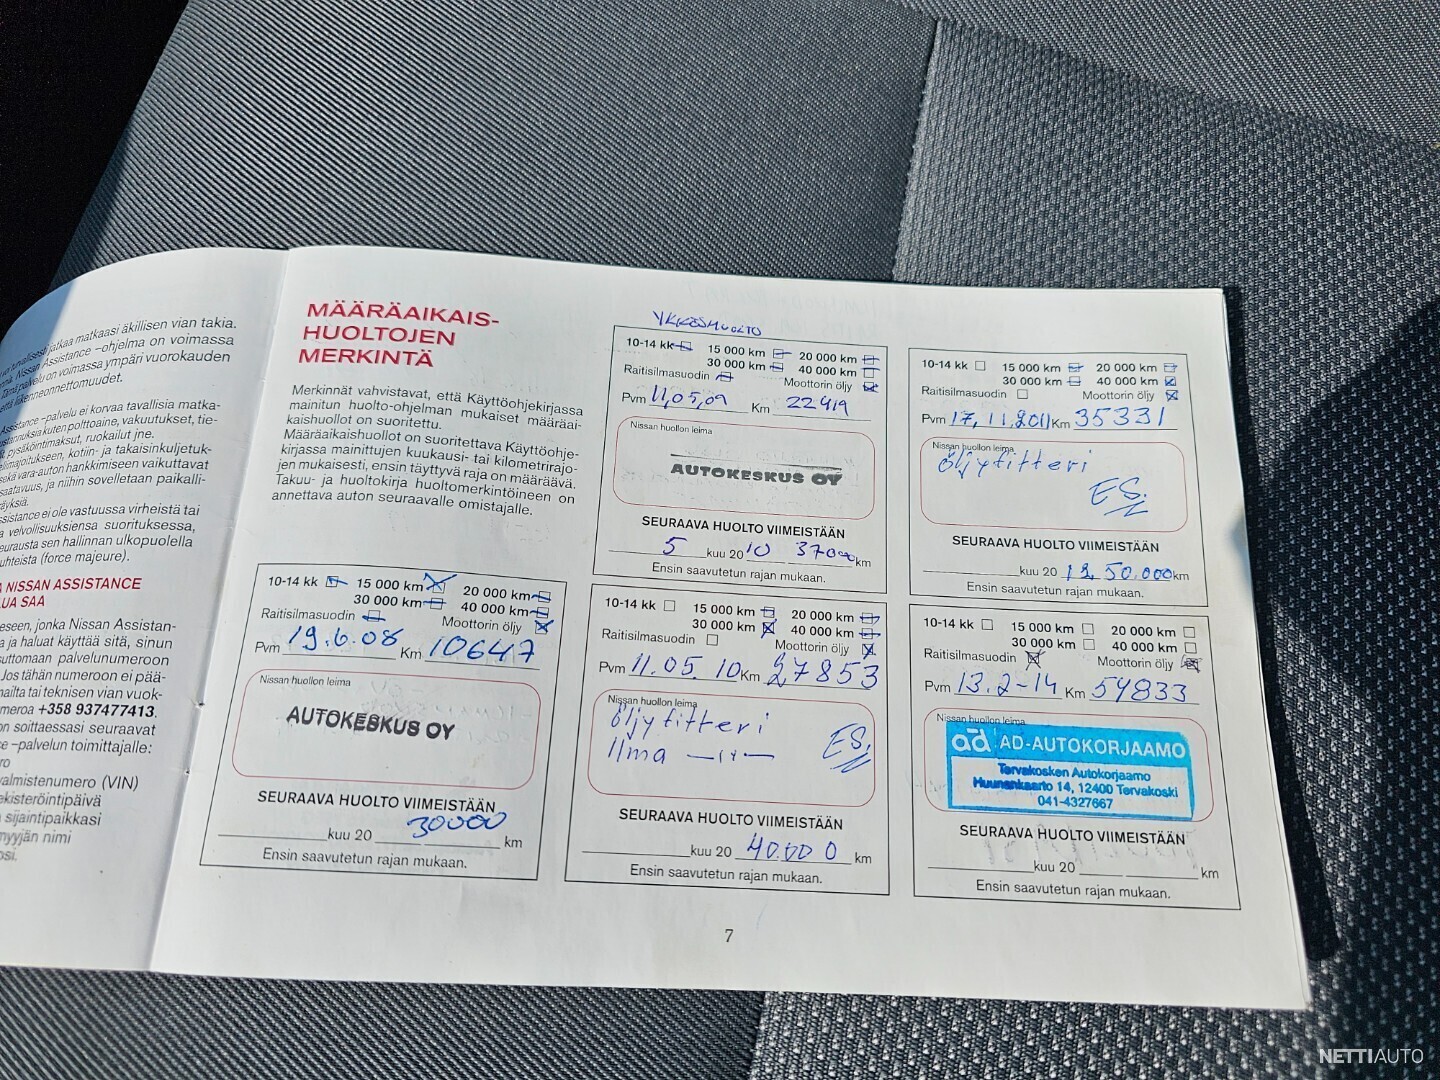 matkaasi äkillisen vian takia.
Nissan Assistance –ohjelma on voimassa
palvelu on voimassa ympäri vuorokauden
Assistance –palvelu ei korvaa tavallisia matka-
kuten polttoaine, vakuutukset, tie-
pysäköintimaksut, ruokailut jne.
kotiin- ja takaisinkuljetuk-
vara-auton hankkimiseen vaikuttavat
saatavuus, ja niihin sovelletaan paikalli-
ei ole vastuussa virheistä tai
velvollisuuksiensa suorituksessa,
seurausta sen hallinnan ulkopuolella
(force majeure).
NISSAN ASSISTANCE
SAA
jonka Nissan Assistan-
ja haluat käyttää sitä, sinun
palvelunumeroon
Jos tähän numeroon ei pää-
tai teknisen vian vuok-
+358 937477413.
soittaessasi seuraavat
–palvelun toimittajalle:
valmistenumero (VIN)
rekisteröintipäivä
sijaintipaikkasi
myyjän nimi
MÄÄRÄAIKAIS-
HUOLTOJEN
MERKINTÄ
Merkinnät vahvistavat, että Käyttöohjekirjassa
mainitun huolto-ohjelman mukaiset määräai-
kaishuollot on suoritettu.
Määräaikaishuollot on suoritettava Käyttöohje-
kirjassa mainittujen kuukausi- tai kilometrirajo-
jen mukaisesti, ensin täyttyvä raja on määräävä.
Takuu- ja huoltokirja huoltomerkintöineen on
annettava auton seuraavalle omistajalle.
10-14 kk 15 000 km 20 000 km
30 000 km 40 000 km
Raitisilmasuodin Moottorin öljy
Pvm 19.6.08 Km 10647
Nissan huollon leima
AUTOKESKUS OY
SEURAAVA HUOLTO VIIMEISTÄÄN
kuu 20 30000 km
Ensin saavutetun rajan mukaan.
YKKÖSHUOLTO
10-14 kk 15 000 km 20 000 km
30 000 km 40 000 km
Raitisilmasuodin Moottorin öljy
Pvm 11,05,09 Km 22419
Nissan huollon leima
AUTOKESKUS OY
SEURAAVA HUOLTO VIIMEISTÄÄN
5 kuu 20 10 37000 km
Ensin saavutetun rajan mukaan.
10-14 kk 15 000 km 20 000 km
30 000 km 40 000 km
Raitisilmasuodin Moottorin öljy
Pvm 11.05.10 Km 27853
Nissan huollon leima
öljyfitteri
Ilma —〃— ES.
SEURAAVA HUOLTO VIIMEISTÄÄN
kuu 20 40.000 km
Ensin saavutetun rajan mukaan.
10-14 kk 15 000 km 20 000 km
30 000 km 40 000 km
Raitisilmasuodin Moottorin öljy
Pvm 17.11.2011 Km 35331
Nissan huollon leima
öljyfitteri
ES.
SEURAAVA HUOLTO VIIMEISTÄÄN
kuu 20 12 50.000 km
Ensin saavutetun rajan mukaan.
10-14 kk 15 000 km 20 000 km
30 000 km 40 000 km
Raitisilmasuodin Moottorin öljy
Pvm 13.2-14 Km 54833
Nissan huollon leima
ad AD-AUTOKORJAAMO
Tervakosken Autokorjaamo
Huunankaarto 14, 12400 Tervakoski
041-4327667
SEURAAVA HUOLTO VIIMEISTÄÄN
kuu 20 km
Ensin saavutetun rajan mukaan.
7
NETTIAUTO